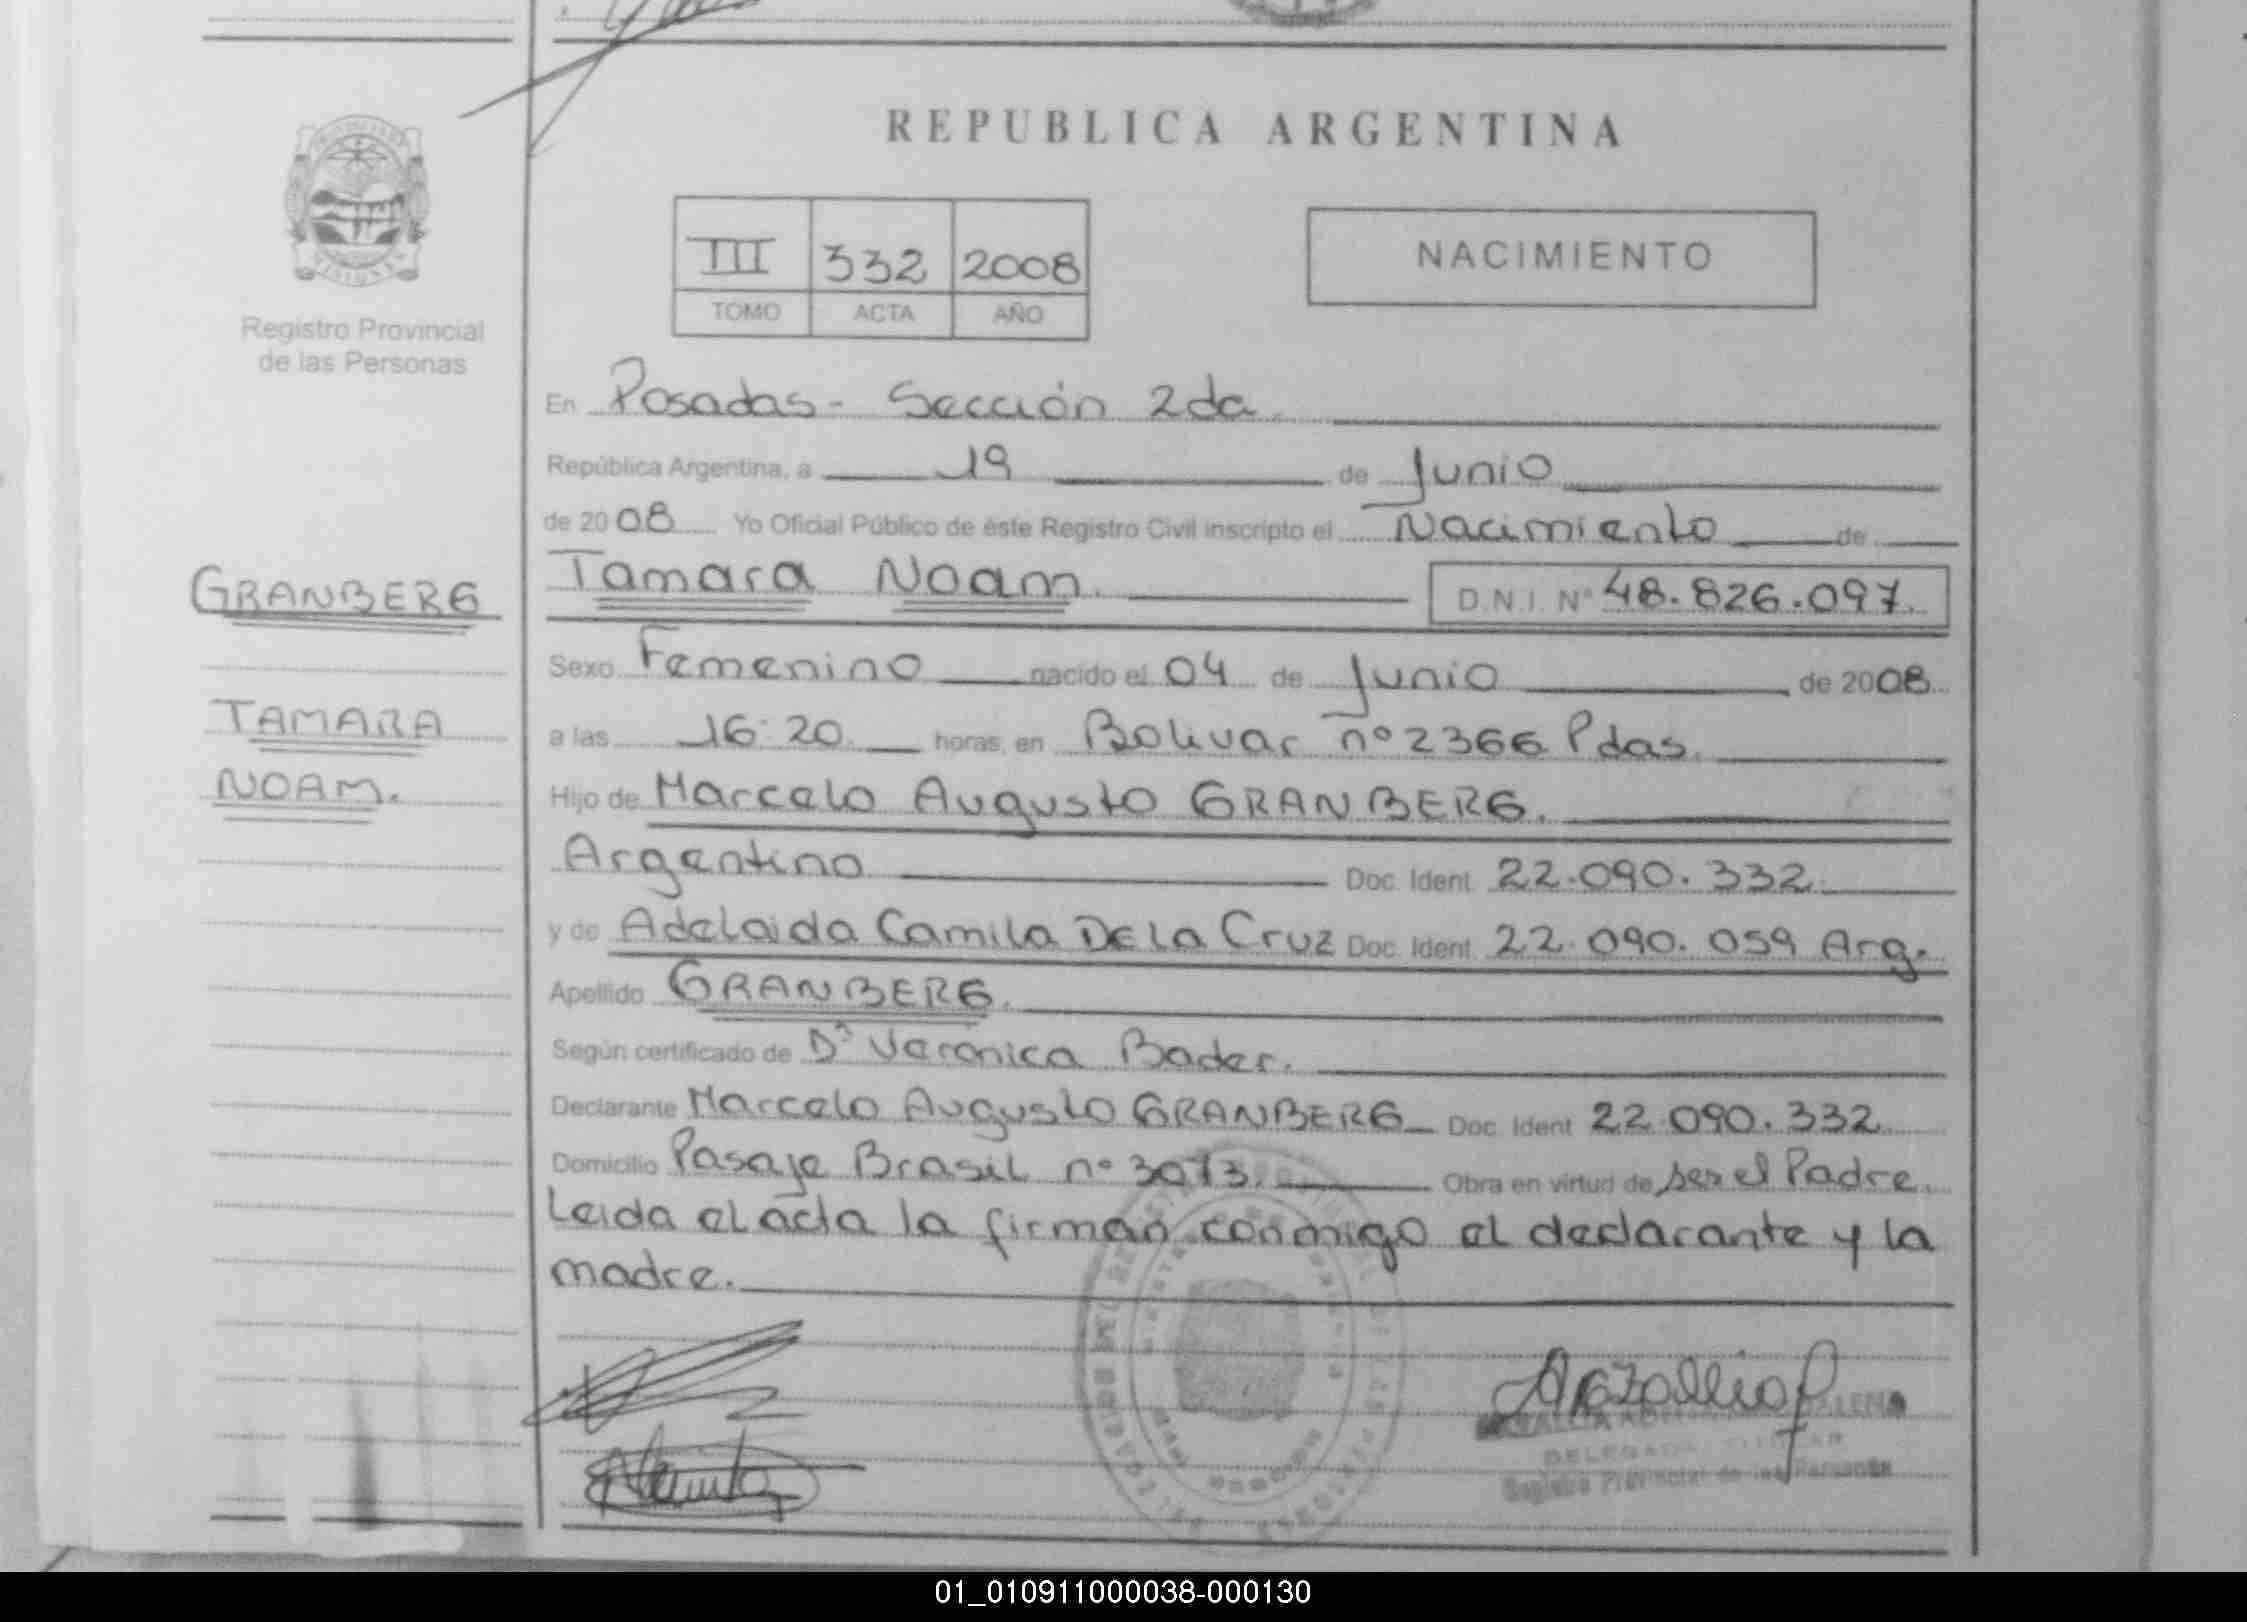 REPUBLICA ARGENTINA
III 332 2008
TOMO ACTA AÑO
NACIMIENTO
MISIONES
Registro Provincial
de las Personas
GRANBERG
TAMARA
NOAM.
En Posadas - Sección 2da.
República Argentina, a 19 de Junio
de 2008 Yo Oficial Público de éste Registro Civil inscripto el Nacimiento de
Tamara Noam. D.N.I. Nº 48.826.097.
Sexo Femenino nacido el 04 de Junio de 2008
a las 16:20 horas, en Bolivar nº 2366 Pdas.
Hijo de Marcelo Augusto GRANBERG.
Argentino Doc. Ident. 22.090.332.
y de Adelaida Camila De La Cruz Doc. Ident. 22.090.059 Arg.
Apellido GRANBERG.
Según certificado de Dª Veronica Bader.
Declarante Marcelo Augusto GRANBERG Doc. Ident 22.090.332
Domicilio Pasaje Brasil nº 3073. Obra en virtud de ser el Padre.
Leida el acta la firman conmigo el declarante y la
madre.
Registro Provincial de las Personas
01_010911000038-000130